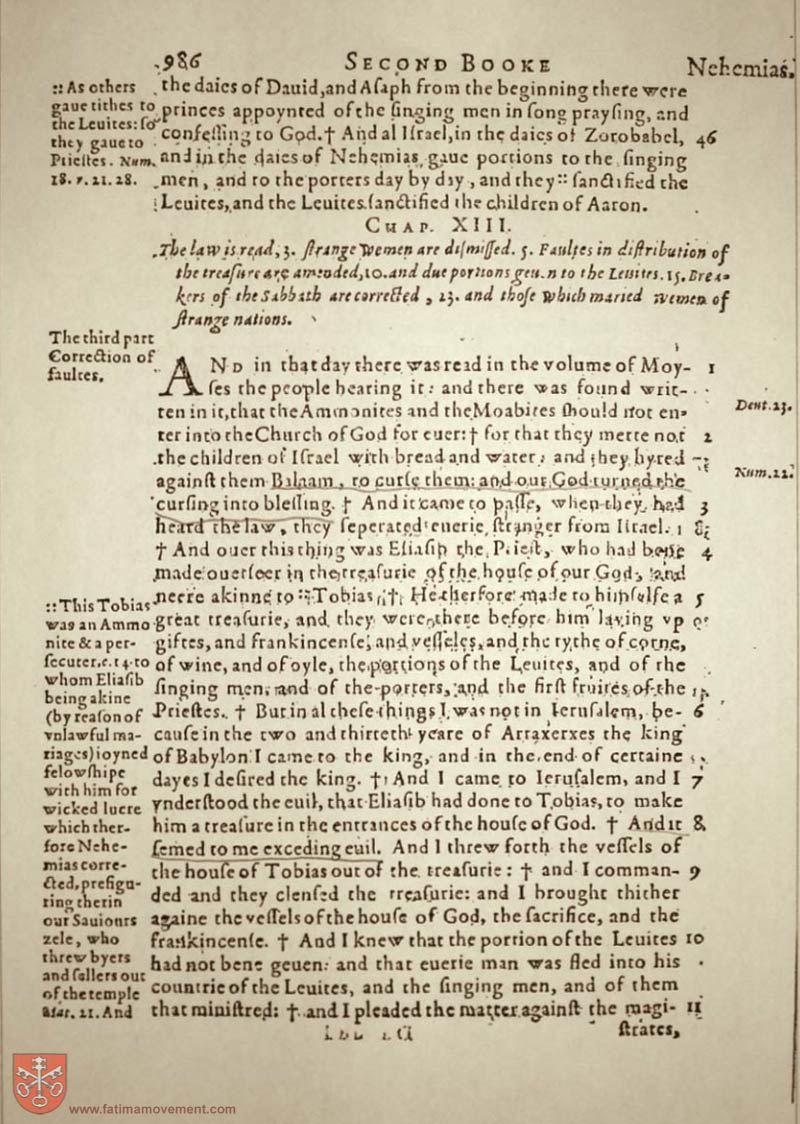 986
SECOND BOOKE
Nehemias.
:: As others
gaue tithes to
the Leuites: so
they gaue to
Priestes. Num.
18. v. 21. 28.
the daies of Dauid, and Asaph from the beginning there were
princes appoynted of the singing men in song praysing, and
confessing to God. † And al Israel, in the daies of Zorobabel, 46
and in the daies of Nehemias, gaue portions to the singing
men, and to the porters day by day, and they :: sanctified the
Leuites, and the Leuites sanctified the children of Aaron.
CHAP. XIII.
The law is read, 3. strange women are dismissed. 5. Faultes in distribution of
the treasure are amended, 10. and due portions geuen to the Leuites. 15. Brea-
kers of the Sabbath are corrected, 23. and those which maried women of
strange nations.
The third part
Correction of
faultes.
AND in that day there was read in the volume of Moy- 1
ses the people hearing it: and there was found writ-
ten in it, that the Ammonites and the Moabites should not en- Deut. 23.
ter into the Church of God for euer: † for that they mette not 2
the children of Israel with bread and water: and they hyred
against them Balaam, to curse them: and our God turned the Num. 22.
cursing into blessing. † And it came to passe, when they had 3
heard the law, they seperated euerie stranger from Israel.
† And ouer this thing was Eliasib the Priest, who had bene 4
made ouerseer in the treasurie of the house of our God, and
neere akinne to :: Tobias, † He therfore made to himselfe a 5
great treasurie, and they were there before him laying vp
giftes, and frankincense, and vessels, and the tythe of corne,
of wine, and of oyle, the portions of the Leuites, and of the
singing men, and of the porters, and the first fruites of the
Priestes. † But in al these things I was not in Ierusalem, be- 6
cause in the two and thirteth yeare of Artaxerxes the king
of Babylon I came to the king, and in the end of certaine
dayes I desired the king. † And I came to Ierusalem, and I 7
vnderstood the euil, that Eliasib had done to Tobias, to make
him a treasure in the entrances of the house of God. † And it 8
semed to me exceding euil. And I threw forth the vessels of
the house of Tobias out of the treasurie: † and I comman- 9
ded and they clensed the treasurie: and I brought thither
againe the vessels of the house of God, the sacrifice, and the
frankincense. † And I knew that the portion of the Leuites 10
had not bene geuen: and that euerie man was fled into his
countrie of the Leuites, and the singing men, and of them
that ministred: † and I pleaded the matter against the magi- 11
strates,
:: This Tobias
was an Ammo
nite & a per-
secuter. c. 14. to
whom Eliasib
being akine
(by reason of
vnlawful ma-
riages) ioyned
felowshipe
with him for
wicked lucre
which ther-
fore Nehe-
mias corre-
cted, prefigu-
ring therin
our Sauiours
zele, who
threw byers
and sellers out
of the temple
Mat. 21. And
www.fatimamovement.com